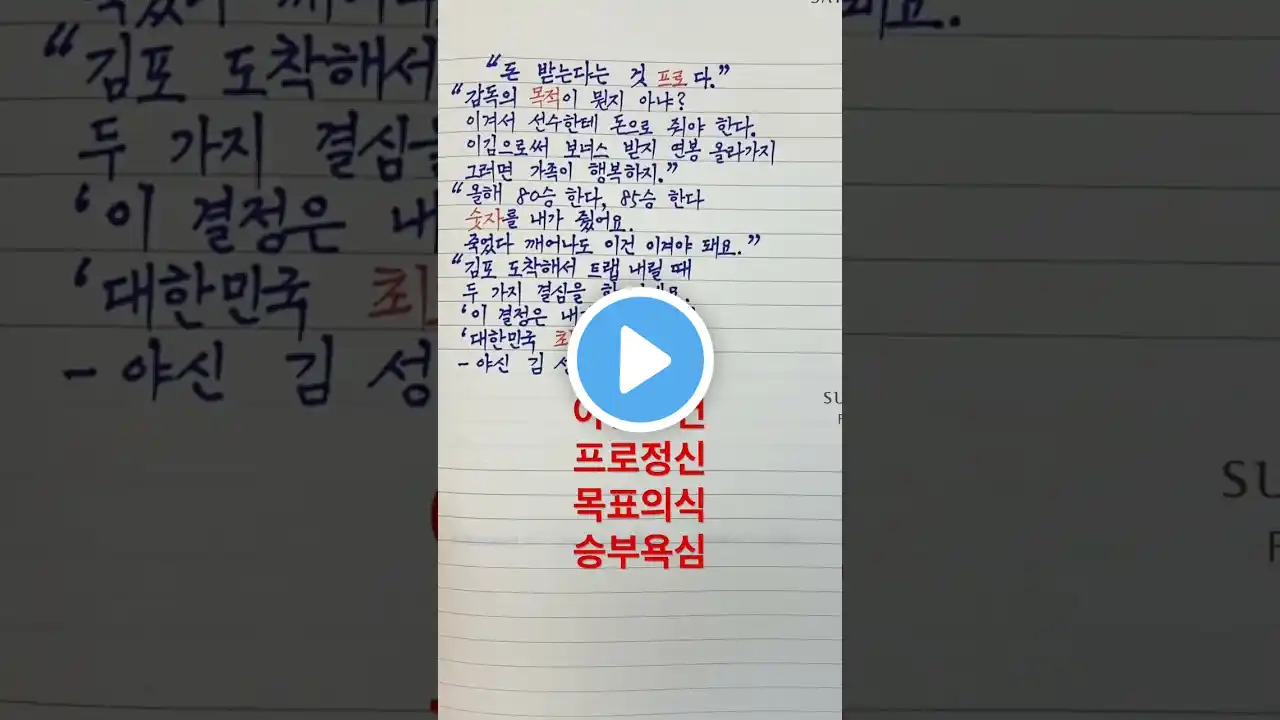 “돈 받는다는 것 프로다.”
“감독의 목적이 뭔지 아냐?
이겨서 선수한테 돈으로 줘야 한다.
이김으로써 보너스 받지 연봉 올라가지
그러면 가족이 행복하지.”
“올해 80승 한다, 85승 한다
숫자를 내가 줬어요.
죽었다 깨어나도 이건 이겨야 돼요.”
“김포 도착해서 트랩 내릴 때
두 가지 결심을
‘이 결정은
‘대한민국
- 야신 김
프로정신
목표의식
승부욕심
“김포 도착해서
두 가지
‘이 결정은
‘대한민국
- 야신 김
SU